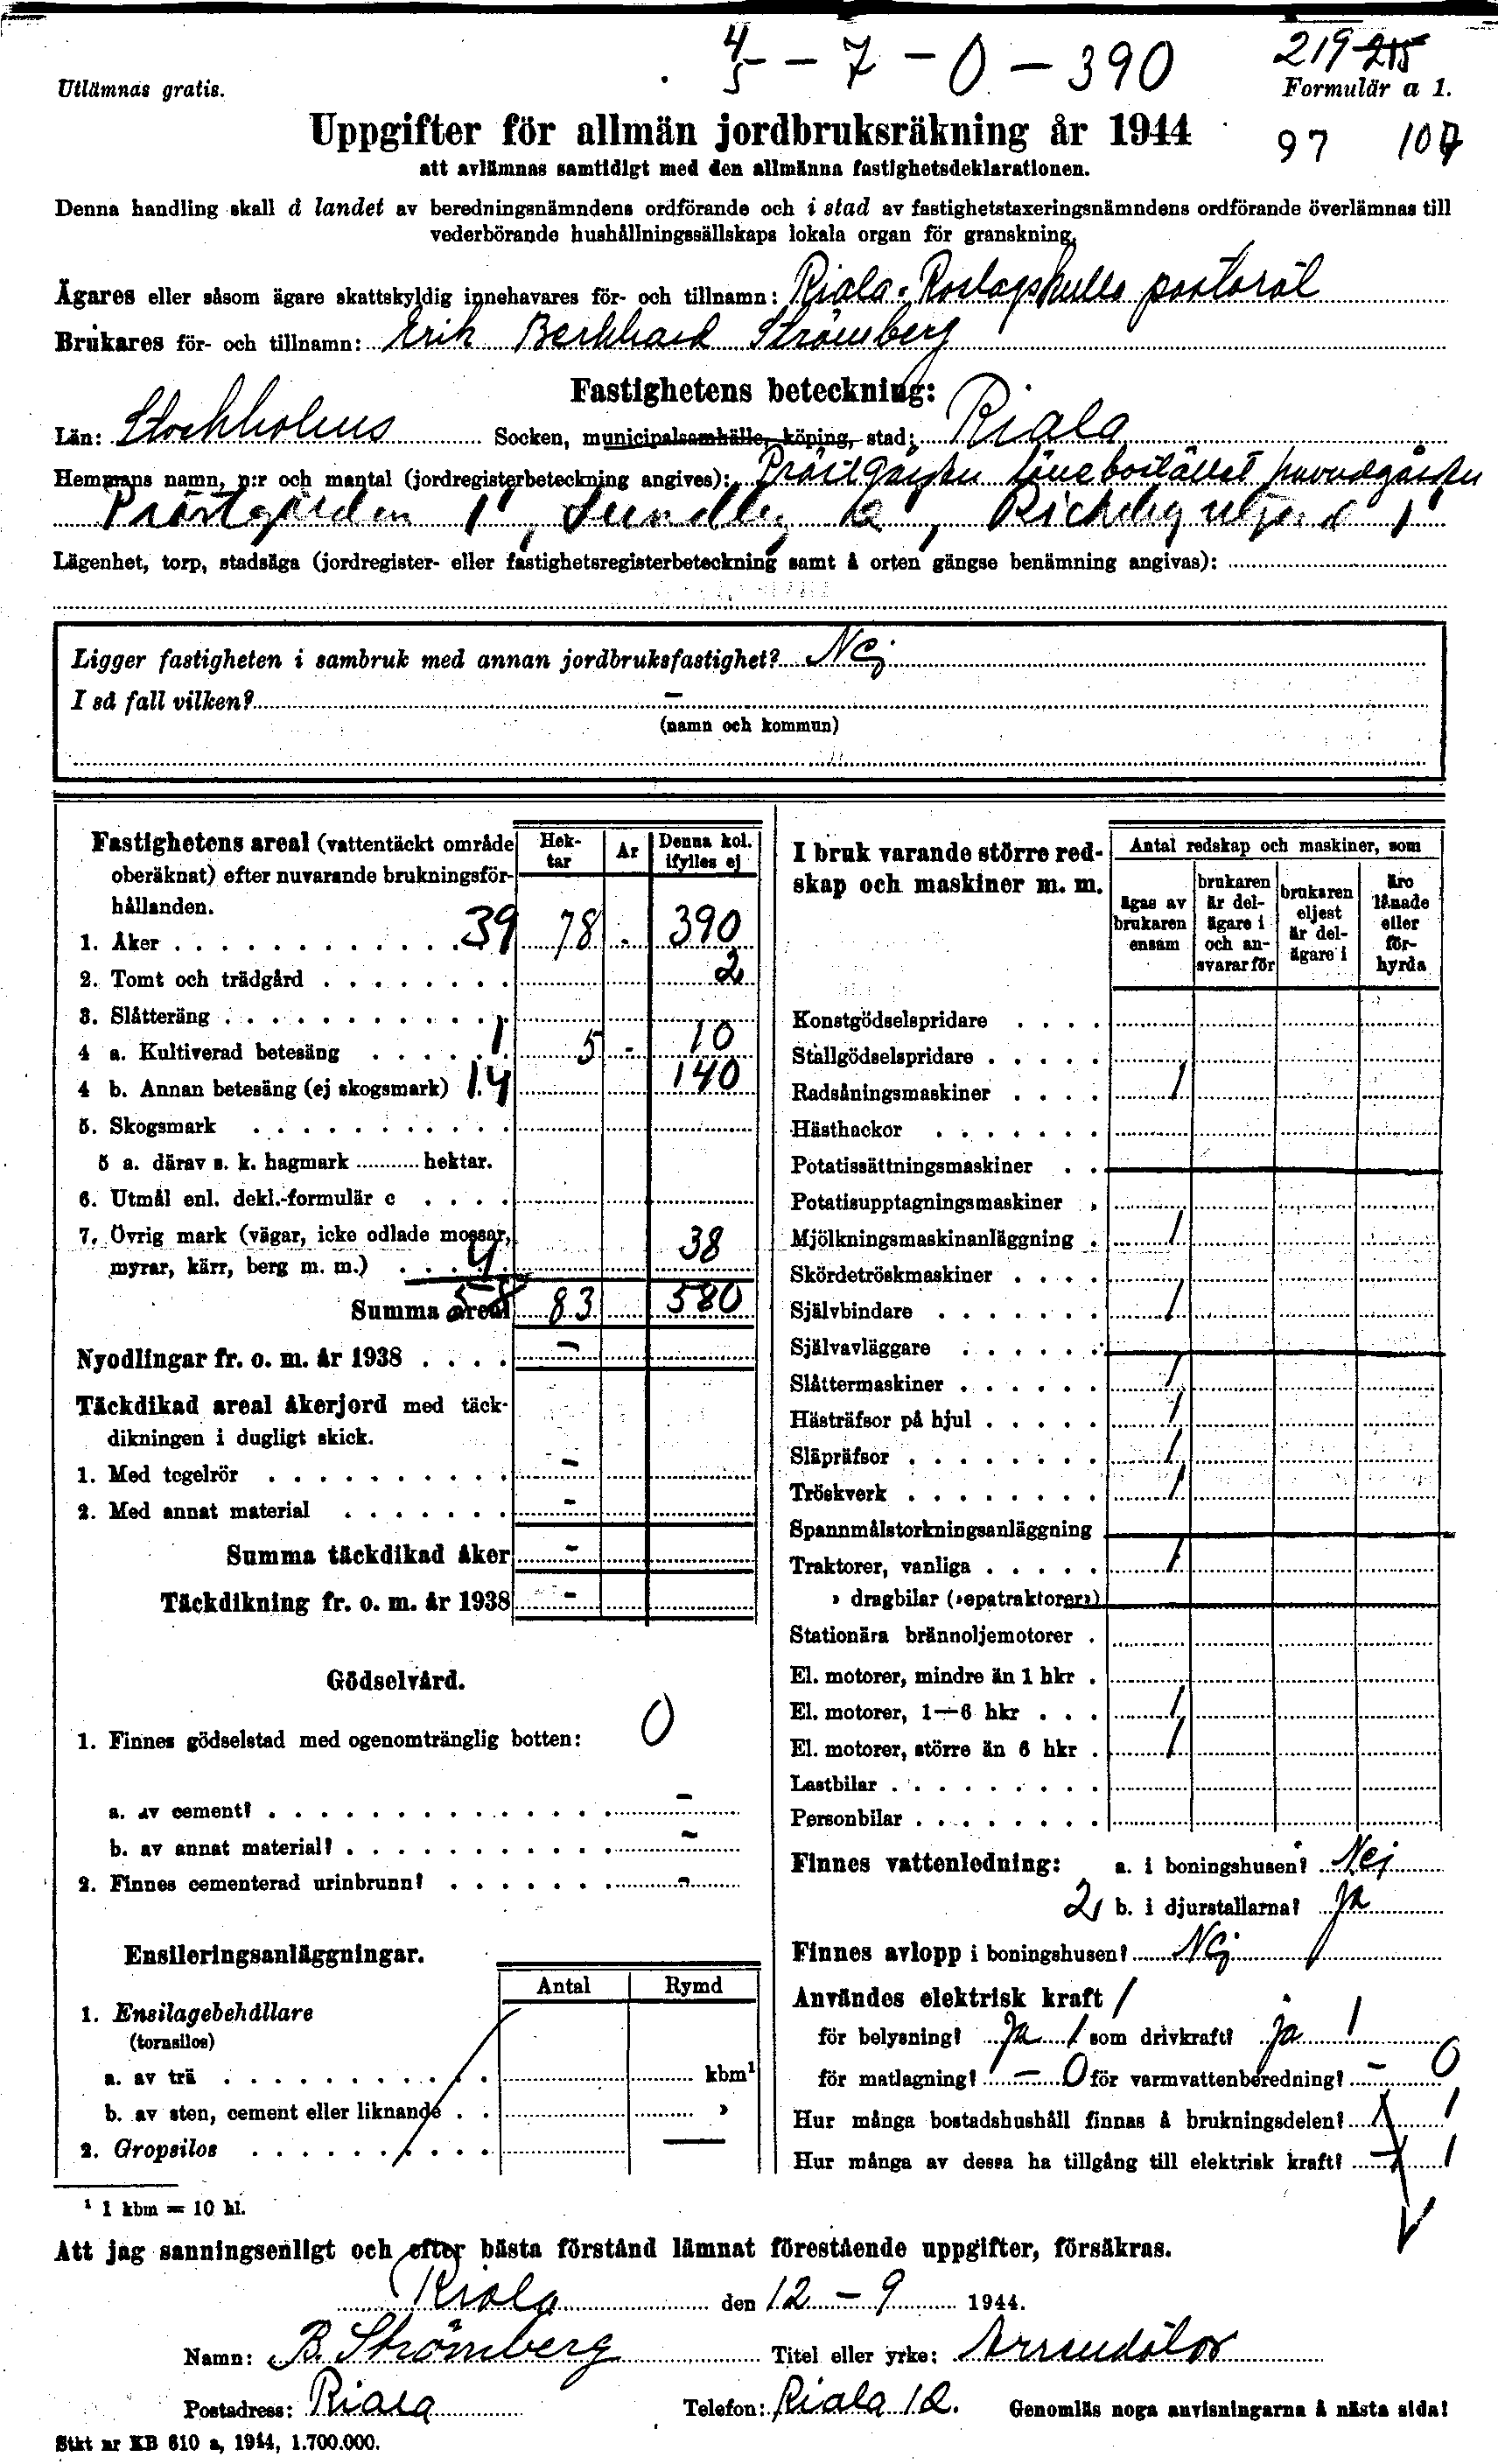 4/5 - 7 - 0 - 390
219 215
Utlämnas gratis.
Formulär a 1.
Uppgifter för allmän jordbruksräkning år 1944
97 107
att avlämnas samtidigt med den allmänna fastighetsdeklarationen.
Denna handling skall å landet av beredningsnämndens ordförande och i stad av fastighetstaxeringsnämndens ordförande överlämnas till
vederbörande hushållningssällskaps lokala organ för granskning.
Ägares eller såsom ägare skattskyldig innehavares för- och tillnamn: Riala-Roslagskulla pastorat
Brukares för- och tillnamn: Erik Bernhard Strömberg
Fastighetens beteckning:
Län: Stockholms Socken, municipalsamhälle, köping, stad: Riala
Hemmans namn, n:r och mantal (jordregisterbeteckning angives): Prästgården löneboställat
Prästgården 1¹, Sundby 1a, Rickeby 1¹
Lägenhet, torp, stadsäga (jordregister- eller fastighetsregisterbeteckning samt å orten gängse benämning angivas):
Ligger fastigheten i sambruk med annan jordbruksfastighet? Nej
I så fall vilken? -
(namn och kommun)
Fastighetens areal (vattentäckt område oberäknat) efter nuvarande brukningsförhållanden.
Hektar Ar Denna kol. ifylles ej
1. Åker 39 78 . 390
2. Tomt och trädgård 2
3. Slåtteräng
4 a. Kultiverad betesäng 1 5 - 10
4 b. Annan betesäng (ej skogsmark) 14 140
5. Skogsmark
5 a. därav s. k. hagmark hektar.
6. Utmål enl. dekl.-formulär c
7. Övrig mark (vägar, icke odlade mossar,
myrar, kärr, berg m. m.) 4 38
Summa areal 58 83 580
Nyodlingar fr. o. m. år 1938 -
Täckdikad areal åkerjord med täck-
dikningen i dugligt skick.
1. Med tegelrör -
2. Med annat material -
Summa täckdikad åker -
Täckdikning fr. o. m. år 1938 -
Gödselvård.
1. Finnes gödselstad med ogenomtränglig botten: 0
a. av cement? -
b. av annat material? -
2. Finnes cementerad urinbrunn? -
Ensileringsanläggningar.
Antal Rymd
1. Ensilagebehållare
(tornsilos)
a. av trä kbm¹
b. av sten, cement eller liknande »
2. Gropsilos
¹ 1 kbm = 10 hl.
I bruk varande större red-
skap och maskiner m. m.
Antal redskap och maskiner, som
ägas av brukaren ensam
brukaren är delägare i och ansvarar för
brukaren eljest är delägare i
äro lånade eller förhyrda
Konstgödselspridare
Stallgödselspridare
Radsåningsmaskiner 1
Hästhackor
Potatissättningsmaskiner
Potatisupptagningsmaskiner
Mjölkningsmaskinanläggning 1
Skördetröskmaskiner
Självbindare 1
Självavläggare
Slåttermaskiner 1
Hästräfsor på hjul 1
Släpräfsor 1
Tröskverk 1
Spannmålstorkningsanläggning
Traktorer, vanliga 1
» dragbilar (»epatraktorer»)
Stationära brännoljemotorer
El. motorer, mindre än 1 hkr
El. motorer, 1—6 hkr 1
El. motorer, större än 6 hkr 1
Lastbilar
Personbilar
Finnes vattenledning: a. i boningshusen? Nej
2 b. i djurstallarna? ja
Finnes avlopp i boningshusen? Nej
Användes elektrisk kraft 1
för belysning? ja 1 som drivkraft? ja 1
för matlagning? - 0 för varmvattenberedning? - 0
Hur många bostadshushåll finnas å brukningsdelen? 1 1
Hur många av dessa ha tillgång till elektrisk kraft? 1 1
Att jag sanningsenligt och efter bästa förstånd lämnat förestående uppgifter, försäkras.
Riala den 12 - 9 1944.
Namn: B. Strömberg Titel eller yrke: Arrendator
Postadress: Riala Telefon: Riala 12. Genomläs noga anvisningarna å nästa sida!
Stkt nr KB 610 a, 1944, 1.700.000.